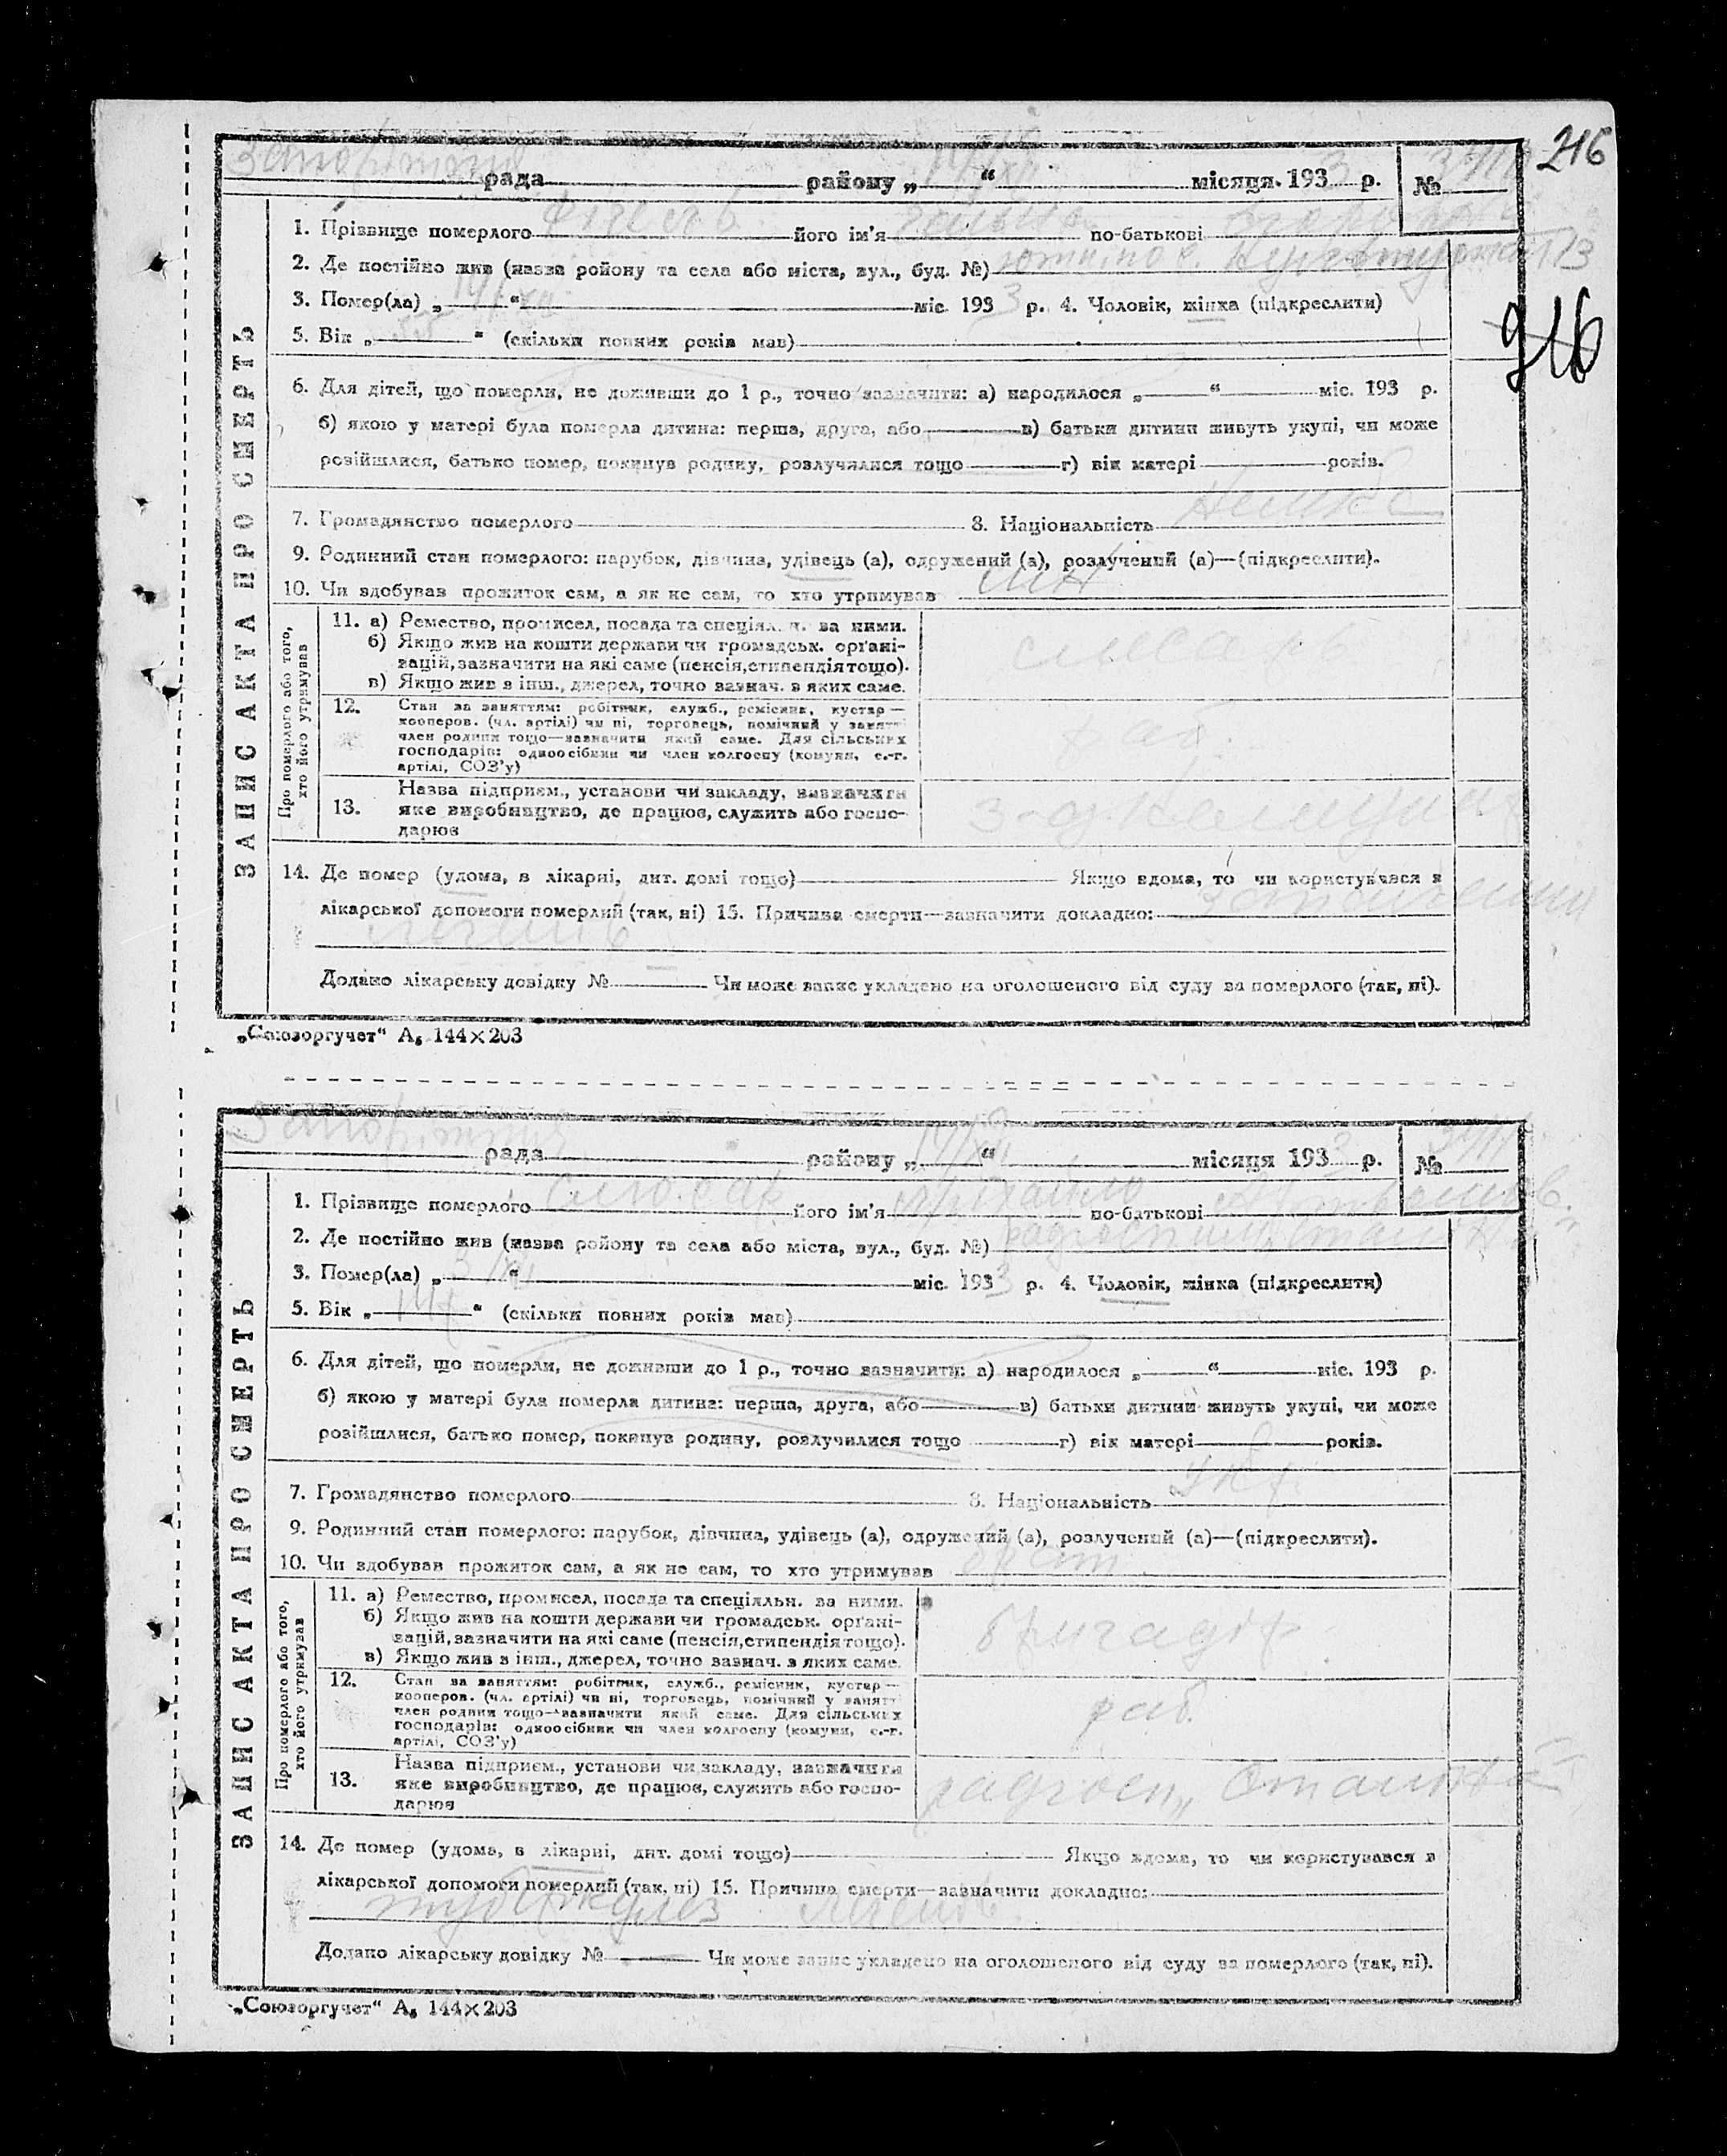 216
рада районy „ “ місяця 1933 р. №
1. Прізвище померлого його ім'я по-батькові
2. Де постійно жив (назва ройону та села або міста, вул., буд. №) 13
3. Помер(ла) „14/XII“ міс. 1933 р. 4. Чоловік, жінка (підкреслити)
216
5. Вік „55“ (скільки повних років мав)
6. Для дітей, що померли, не доживши до 1 р., точно зазначити: а) народилося „ “ міс. 193 р.
б) якою у матері була померла дитина: перша, друга, або в) батьки дитини живуть укупі, чи може
розійшлися, батько помер, покинув родину, розлучилися тощо г) вік матері років.
7. Громадянство померлого 8. Національність Немка
9. Родинний стан померлого: парубок, дівчина, удівець (а), одружений (а), розлучений (а)—(підкреслити).
10. Чи здобував прожиток сам, а як не сам, то хто утримував
ЗАПИС АКТА ПРО СМЕРТЬ
Про померлого або того, хто його утримував
11. а) Ремество, промисел, посада та спеціяльн. за ними.
б) Якщо жив на кошти держави чи громадськ. органі-
зацій, зазначити на які саме (пенсія, стипендія тощо).
в) Якщо жив з інш., джерел, точно зазнач. з яких саме.
слесар
12. Стан за заняттям: робітник, служб., ремісник, кустар —
кооперов. (чл. артілі) чи ні, торговець, помічний у занятті
член родини тощо—зазначити який саме. Для сільських
господарів: одноосібник чи член колгоспу (комуни, с.-г.
артілі, СОЗ'у)
раб.
13. Назва підприєм., установи чи закладу, зазначити
яке виробництво, де працює, служить або госпо-
дарює
14. Де помер (удома, в лікарні, дит. домі тощо) Якщо вдома, то чи користувався з
лікарської допомоги померлий (так, ні) 15. Причина смерти—зазначити докладно:
легенів
Додано лікарську довідку № Чи може запис укладено на оголошеного від суду за померлого (так, ні).
„Союзоргучет“ А₅ 144×203
рада районy „14/XII“ місяця 1933 р. №
1. Прізвище померлого його ім'я Михайло по-батькові
2. Де постійно жив (назва ройону та села або міста, вул., буд. №)
3. Помер(ла) „ “ міс. 1933 р. 4. Чоловік, жінка (підкреслити)
5. Вік „ “ (скільки повних років мав)
6. Для дітей, що померли, не доживши до 1 р., точно зазначити: а) народилося „ “ міс. 193 р.
б) якою у матері була померла дитина: перша, друга, або в) батьки дитини живуть укупі, чи може
розійшлися, батько помер, покинув родину, розлучилися тощо г) вік матері років.
7. Громадянство померлого 8. Національність Укр.
9. Родинний стан померлого: парубок, дівчина, удівець (а), одружений (а), розлучений (а)—(підкреслити).
10. Чи здобував прожиток сам, а як не сам, то хто утримував брат
ЗАПИС АКТА ПРО СМЕРТЬ
Про померлого або того, хто його утримував
11. а) Ремество, промисел, посада та спеціяльн. за ними.
б) Якщо жив на кошти держави чи громадськ. органі-
зацій, зазначити на які саме (пенсія, стипендія тощо).
в) Якщо жив з інш., джерел, точно зазнач. з яких саме.
бригадір
12. Стан за заняттям: робітник, служб., ремісник, кустар —
кооперов. (чл. артілі) чи ні, торговець, помічний у занятті
член родини тощо—зазначити який саме. Для сільських
господарів: одноосібник чи член колгоспу (комуни, с.-г.
артілі, СОЗ'у)
раб.
13. Назва підприєм., установи чи закладу, зазначити
яке виробництво, де працює, служить або госпо-
дарює
14. Де помер (удома, в лікарні, дит. домі тощо) Якщо вдома, то чи користувався з
лікарської допомоги померлий (так, ні) 15. Причина смерти—зазначити докладно:
туберкулез легенів
Додано лікарську довідку № Чи може запис укладено на оголошеного від суду за померлого (так, ні).
„Союзоргучет“ А₅ 144×203